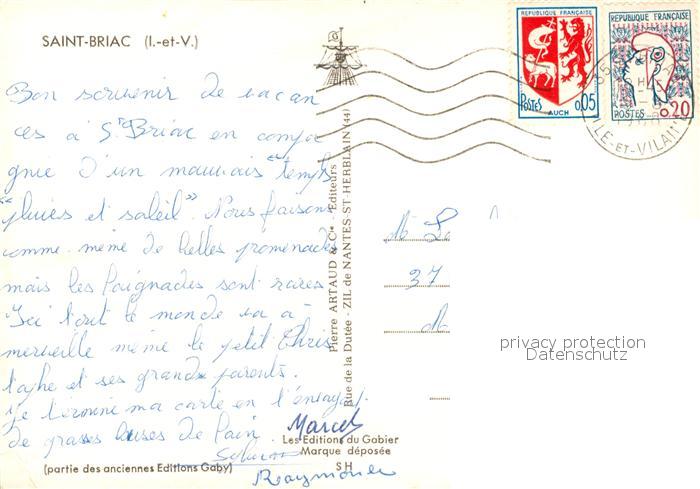 SAINT-BRIAC (I.-et-V.)
REPUBLIQUE FRANÇAISE
POSTES 0,05
AUCH
REPUBLIQUE FRANÇAISE
POSTES 0,20
ILLE-ET-VILAINE
Bon souvenir de vacan
ces à St Briac en compa
gnie d'un mauvais temps
"pluies et soleil". Nous faisons
comme même de belles promenades
mais les baignades sont rares
Ici tout le monde va à
merveille même le petit Chris
tophe et ses grands parents.
Je termine ma carte en t'envoyant
de grosses bises de
Marcel
Raymonde
Pierre ARTAUD & Cie Editeurs
Rue de la Dutée - ZIL de NANTES-ST-HERBLAIN (44)
M Le
37
privacy protection
Datenschutz
Les Editions du Gabier
Marque déposée
SH
(partie des anciennes Editions Gaby)